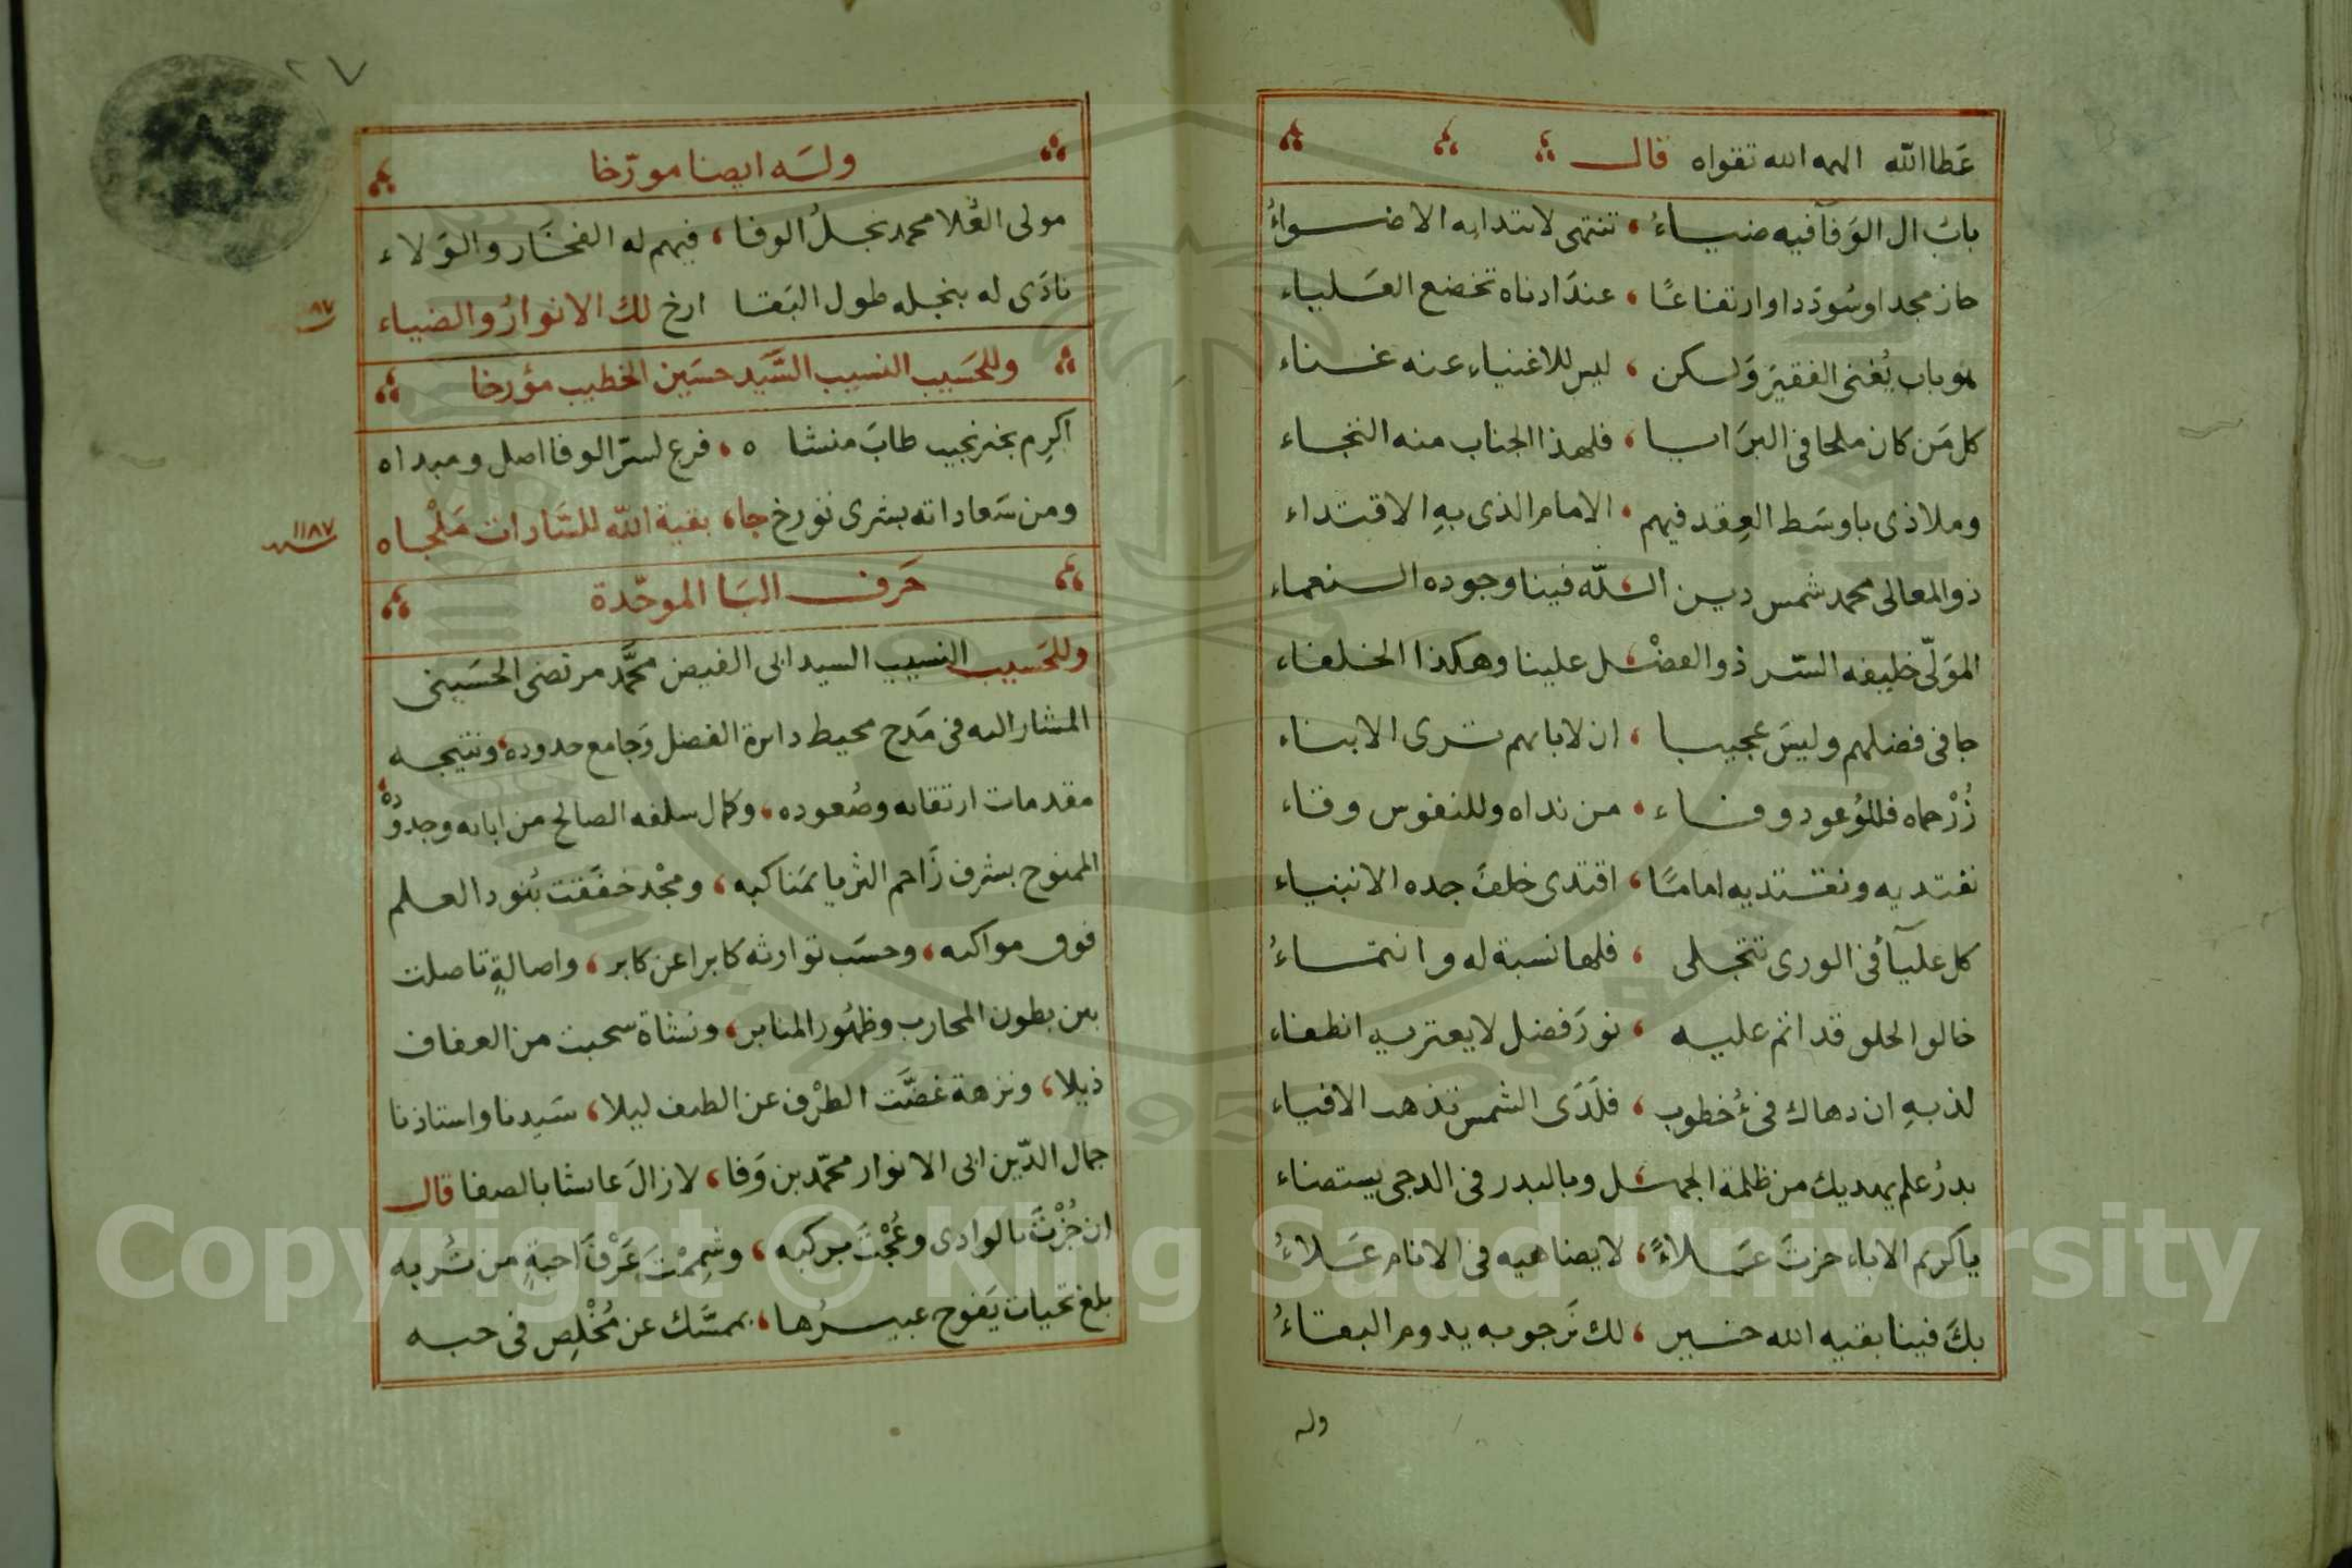 عَطا الله الهمه الله تقواه قال
بابُ ال الوَفآ فيه ضياءُ ، تنتمى لابتدائه الاضواءُ
حاز مجدا وسُوددا وارتفاعًا ، عندَ ادناه تخضع العَلياء
هو باب يُغنى الفقيرَ وَلكن ، ليس للاغنياء عنه غناء
كل مَن كان ملجا فى البرَايا ، فلهذا الجناب منه التجاء
وملاذى باوسَط العِقد فيهم ، الامام الذى بهِ الاقتداء
ذو المعالى محمد شمس دين الله فينا وجوده النعماء
المَولّى خليفه السّر ذو الفضْل علينا وهكذا الخلفاء
جا فى فضلهم وليسَ عجيبا ، ان لابائهم ترى الابناء
زُرْ حماه فللوُعود وفاء ، من نداه وللنفوس وقاء
نفتديه ونقتديه امامًا ، اقتدى خلفَ جده الانبياء
كل عليآءُ فى الورى تتجلى ، فلها نسبة له وانتماءُ
خالو الخلو قد اتم عليه ، نورَ فضل لا يعتريه انطفاء
لذ بهِ ان دهاك فىءُ خطوب ، فلَدَى الشمس تذهب الافياء
بدرُ علم يهديك من ظلمة الجهل وبالبدر فى الدجى يستضاء
ياكريم الاباء حزتَ عَلاءً ، لا يضاهيه فى الانام عَلاءُ
بكَ فينا بقيه الله خير ، لك نَرجو به يدوم البقاءُ
وله
٢٧
ولَه ايضا مورّخا
مولى العُلا محمد نجلُ الوفا ، فيهم له الفخَار والوَلاء
نادَى له بنجله طول البَقا ارخ لك الانوارُ والضياء
٨٧
وللحَسيب النسيب السَّيد حسَين الخطيب مؤرخا
اكرِم بخير نجيب طابَ منشاه ، فرع لسرّ الوفا اصل ومبداه
ومن سَعاداته بشرى نؤرخ جا ، بقية الله للسَّادات مَلْجاه
سنه ١١٨٧
حَرف البَا الموحّدة
وللحَسيب النسيب السيد ابى الفيض محَّمد مرتضى الحسَينى
المشار اليه فى مَدح محيط دائرة الفضل وَجامع حدوده ، ونتيجه
مقدمات ارتقائه وصُعوده ، وكمال سلفه الصالح من ابائه وجدوُده
الممنوح بشرف زَاحم الثريا بمَناكبه ، ومجْد خفَقت بُنود العلم
فوق مواكبه ، وحسَب توارثه كابرا عن كابر ، واصالةٍ تاصلت
بين بطون المحارب وظهُور المنابر ، ونشاة سحبت من العفاف
ذيلا ، ونزهة غضَّت الطرْف عن الطيف ليلا ، سَيدنا واستاذنا
جمال الدّين ابى الانوار محمّد بن وَفا ، لا زالَ عائشا بالصفا قال
ان جُزْتَ بالوادى وعُجْتَ بركبه ، وشمِمْتَ عَرْفَ احبةٍ من تُربه
بلغ تحيات يَفوح عبيرُها ، بمسَّك عن مُخْلِص فى حبه